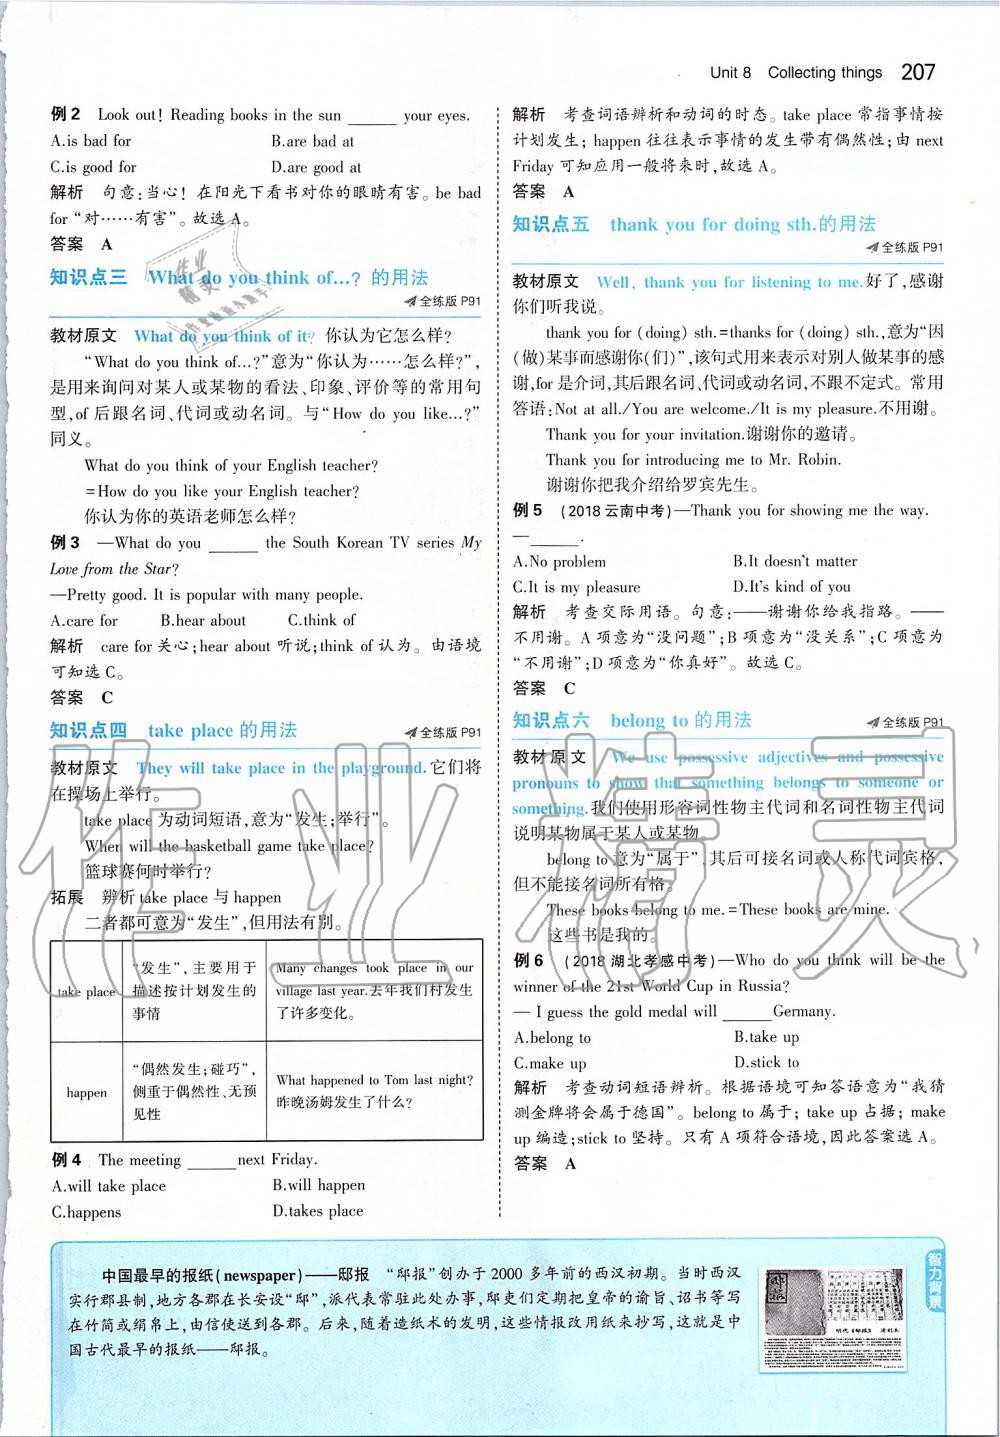 Unit 8 Collecting things 207
例2 Look out! Reading books in the sun ______ your eyes.
A.is bad for B.are bad at
C.is good for D.are good at
解析 句意:当心! 在阳光下看书对你的眼睛有害。be bad
for “对……有害”。故选A。
答案 A
知识点三 What do you think of…? 的用法
全练版 P91
教材原文 What do you think of it? 你认为它怎么样?
“What do you think of…?”意为“你认为……怎么样?”,
是用来询问对某人或某物的看法、印象、评价等的常用句
型,of 后跟名词、代词或动名词。与“How do you like…?”
同义。
What do you think of your English teacher?
=How do you like your English teacher?
你认为你的英语老师怎么样?
例3 —What do you ______ the South Korean TV series My
Love from the Star?
—Pretty good. It is popular with many people.
A.care for B.hear about C.think of
解析 care for 关心;hear about 听说;think of 认为。由语境
可知选C。
答案 C
知识点四 take place 的用法
全练版 P91
教材原文 They will take place in the playground.它们将
在操场上举行。
take place 为动词短语,意为“发生;举行”。
When will the basketball game take place?
篮球赛何时举行?
拓展 辨析 take place 与 happen
二者都可意为“发生”,但用法有别。
take place “发生”,主要用于描述按计划发生的事情 Many changes took place in our village last year.去年我们村发生了许多变化。
happen “偶然发生;碰巧”,侧重于偶然性、无预见性 What happened to Tom last night? 昨晚汤姆发生了什么?
例4 The meeting ______next Friday.
A.will take place B.will happen
C.happens D.takes place
解析 考查词语辨析和动词的时态。take place 常指事情按
计划发生; happen 往往表示事情的发生带有偶然性;由 next
Friday 可知应用一般将来时,故选 A。
答案 A
知识点五 thank you for doing sth.的用法
全练版 P91
教材原文 Well, thank you for listening to me.好了,感谢
你们听我说。
thank you for (doing) sth.=thanks for (doing) sth.,意为“因
(做)某事而感谢你(们)”,该句式用来表示对别人做某事的感
谢,for 是介词,其后跟名词、代词或动名词,不跟不定式。常用
答语:Not at all./You are welcome./It is my pleasure.不用谢。
Thank you for your invitation.谢谢你的邀请。
Thank you for introducing me to Mr. Robin.
谢谢你把我介绍给罗宾先生。
例5 (2018云南中考)—Thank you for showing me the way.
—______.
A.No problem B.It doesn't matter
C.It is my pleasure D.It's kind of you
解析 考查交际用语。句意:——谢谢你给我指路。——
不用谢。A 项意为“没问题”;B 项意为“没关系”;C 项意为
“不用谢”;D 项意为“你真好”。故选 C。
答案 C
知识点六 belong to 的用法
全练版 P91
教材原文 We use possessive adjectives and possessive
pronouns to show that something belongs to someone or
something.我们使用形容词性物主代词和名词性物主代词
说明某物属于某人或某物。
belong to 意为“属于”,其后可接名词或人称代词宾格,
但不能接名词所有格。
These books belong to me.=These books are mine.
这些书是我的。
例6 (2018 湖北孝感中考)—Who do you think will be the
winner of the 21st World Cup in Russia?
— I guess the gold medal will ______Germany.
A.belong to B.take up
C.make up D.stick to
解析 考查动词短语辨析。根据语境可知答语意为“我猜
测金牌将会属于德国”。belong to 属于; take up 占据; make
up 编造;stick to 坚持。只有 A 项符合语境,因此答案选 A。
答案 A
智力背景
中国最早的报纸(newspaper)——邸报 “邸报”创办于 2000 多年前的西汉初期。当时西汉
实行郡县制,地方各郡在长安设“邸”,派代表常驻此处办事,邸吏们定期把皇帝的谕旨、诏书等写
在竹简或绢帛上,由信使送到各郡。后来,随着造纸术的发明,这些情报改用纸来抄写,这就是中
国古代最早的报纸——邸报。
作业精灵